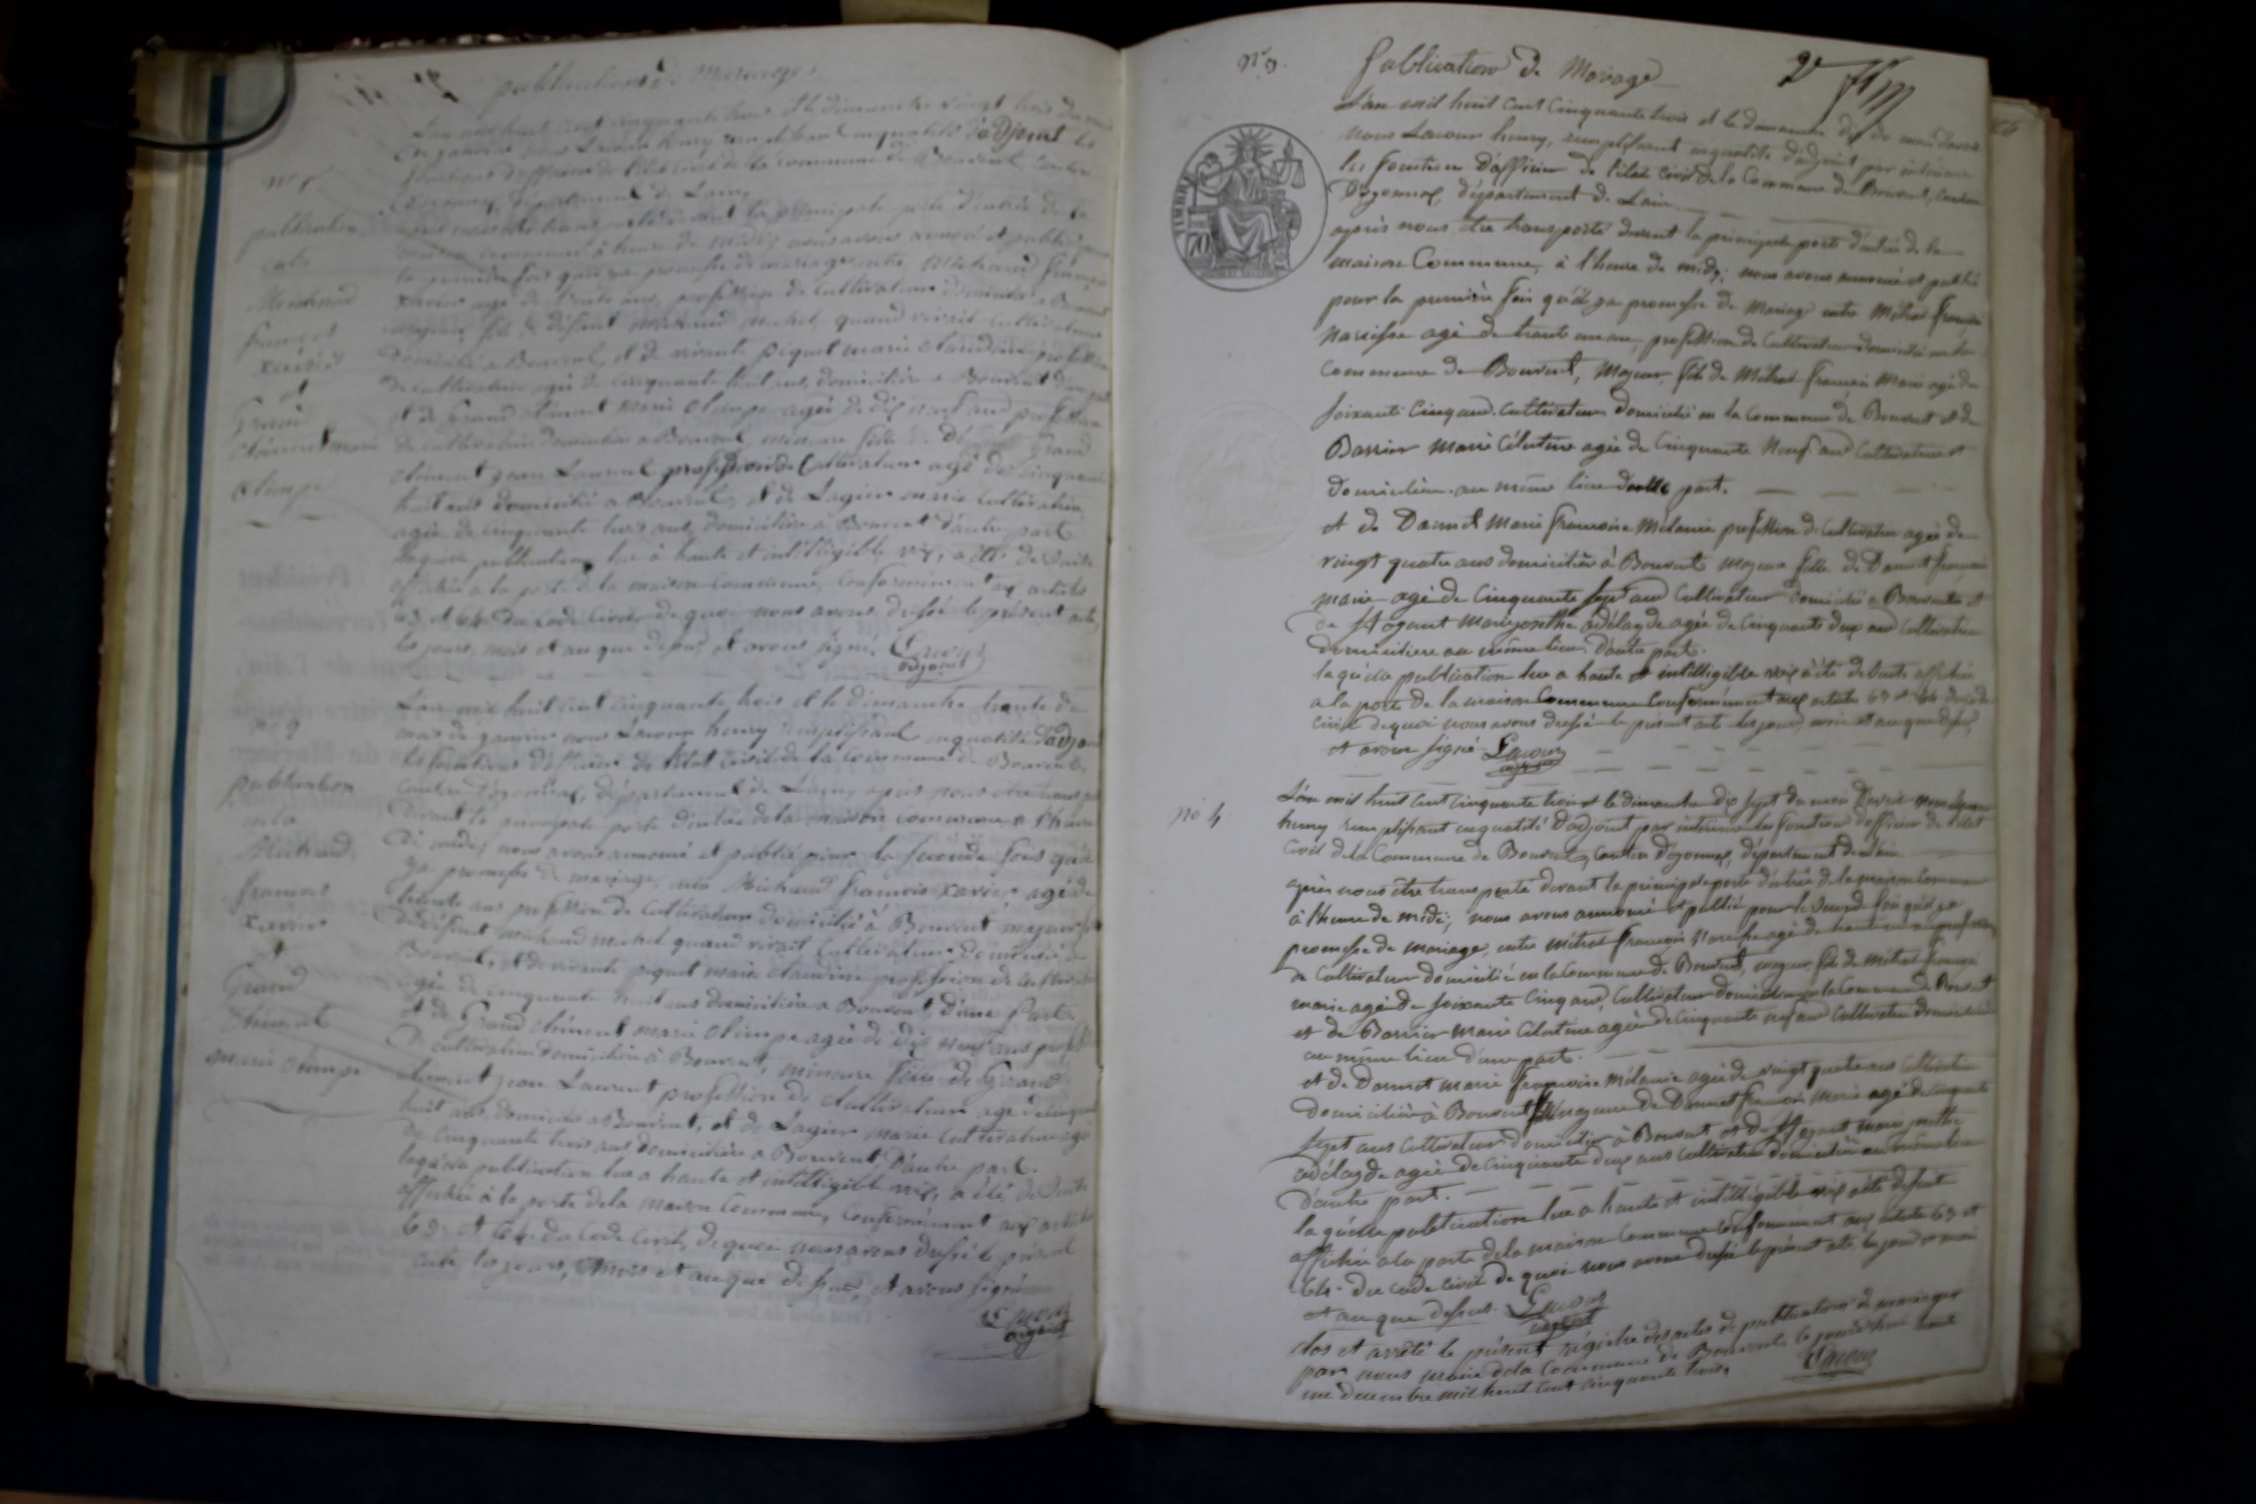 publications de mariages
L'an mil huit cent cinquante trois et le dimanche vingt trois du mois
de janvier nous Lacour henry remplissant en qualité d'adjoint les
fonctions d'officier de l'état civil de la commune de Bouvent, canton
d'oyonnax, département de Lain
après nous être transporté devant la principale porte d'entrée de la
maison commune à l'heure de midi; nous avons annoncé et publié pour
la première fois qu'il ya promesse de mariage entre Michaud françois
xavier agé de trente ans, profession de Cultivateur domicilié a Bouvent
majeur fils de défunt michaud michel quand vivait cultivateur
domicilié a Bouvent, et de vivante piquet marie claudine profession
de cultivatrice agée de cinquante huit ans, domiciliée a Bouvent d'une part
et de Grand clément marie olimpe agée de dix neuf ans profession
de cultivatrice domiciliée a Bouvent mineure fille de Grand
clément jean Laurent profession de Cultivateur agé de cinquante
huit ans domicilié a Bouvent, et de Lagier marie cultivatrice
agée de cinquante trois ans, domiciliée a Bouvent d'autre part
laquelle publication lue à haute et intelligible voix, a été de suite
affichée a la porte de la maison commune, conformément aux articles
63 et 64 du code civil de quoi nous avons dressé le présent acte,
les jours, mois et an que dessus, et avons signé. Lacour
adjoint
nº 1
publication
entre
Michaud
françois
xavier
et
Grand
clément marie
olimpe
L'an mil huit cent cinquante trois et le dimanche trente du
mois de janvier nous Lacour henry remplissant en qualité d'adjoint
les fonctions d'officier de l'état civil de la commune de Bouvent,
canton d'oyonnax, département de Lain, après nous être transporté
devant la principale porte d'entrée de la maison commune a l'heure
de midi; nous avons annoncé et publié pour la seconde fois qu'il
ya promesse de mariage, entre Michaud françois xavier agé de
trente ans profession de cultivateur domicilié à Bouvent majeur fils
de défunt michaud michel quand vivait Cultivateur domicilié a
Bouvent, et de vivante piquet marie claudine profession de cultivatrice
agée de cinquante huit ans domiciliée a Bouvent d'une part
et de Grand clément marie olimpe agée de dix neuf ans profession
de cultivatrice domiciliée à Bouvent, mineure fille de Grand
clément jean Laurent profession de Cultivateur agé de cinquante
huit ans, domicilié a Bouvent, et de Lagier marie cultivatrice agée
de cinquante trois ans, domiciliée a Bouvent, d'autre part.
laquelle publication lue a haute et intelligible voix, a été de suite
affichée à la porte de la maison commune, conformément aux articles
63 et 64 du Code Civil, de quoi nous avons dressé le présent
acte les jours, mois et an que dessus, et avons signé
Lacour
adjoint
nº 2
publication
entre
Michaud
françois
xavier
et
Grand
clément
marie olimpe
nº 3.
Publication de Mariage
2
L'an mil huit cent cinquante trois et le dimanche dix du mois d'avril
nous Lacour henry, remplissant en qualité d'adjoint par intérim
les fonctions d'officier de l'état civil de la Commune de Bouvent, Canton
d'oyonnax, département de Lain
après nous être transporté devant la principale porte d'entrée de la
maison Commune, à l'heure de midi; nous avons annoncé et publié
pour la première fois qu'il ya promesse de Mariage entre Mitral françois
Narcisse agé de trente un ans, profession de Cultivateur domicilié en la
Commune de Bouvent, Majeur, fils de Mitral françois Marie agé de
soixante cinq ans. Cultivateur domicilié en la Commune de Bouvent et de
Barrier Marie Célestine agée de Cinquante Neuf ans Cultivatrice
domiciliée au même lieu d'une part.
et de Dannet Marie françoise Mélanie profession de Cultivatrice agée de
vingt quatre ans domiciliée à Bouvent majeure fille de Dannet françois
marie agé de Cinquante sept ans Cultivateur domicilié a Bouvent et
de adélayde agée de Cinquante deux ans Cultivatrice
domiciliée au même lieu, d'autre part.
laquelle publication lue a haute et intelligible voix à été de suite affichée
a la porte de la maison Commune Conformément aux articles 63 et 64 du code
civil de quoi nous avons dressé le présent acte les jour, mois et an que dessus,
et avons signé Lacour
adjoint
nº 4
L'an mil huit cent cinquante trois et le dimanche dix sept du mois d'avril nous Lacour
henry remplissant en qualité d'adjoint par intérim les fonctions d'officier de l'état
civil de la Commune de Bouvent, Canton d'oyonnax, département de Lain
après nous être transporté devant la principale porte d'entrée de la maison Commune
à l'heure de midi; nous avons annoncé et publié pour la seconde fois qu'il ya
promesse de mariage, entre mitral françois Narcisse agé de trente un ans profession
de Cultivateur domicilié en la Commune de Bouvent, majeur, fils de mitral françois
marie agé de soixante cinq ans, Cultivateur domicilié en la Commune de Bouvent
et de Barrier Marie Célestine agée de Cinquante neuf ans Cultivatrice domiciliée
au même lieu d'une part.
et de Dannet marie françoise Mélanie agée de vingt quatre ans Cultivatrice
domiciliée à Bouvent majeure de Dannet françois Marie agé de cinquante
sept ans Cultivateur domicilié à Bouvent et de
adélayde agée de Cinquante deux ans Cultivatrice domiciliée au même lieu
d'autre part.
laquelle publication lue a haute et intelligible voix a été de suite
affichée a la porte de la maison Commune conformément aux articles 63 et
64. du code civil de quoi nous avons dressé le présent acte les jour et mois
et an que dessus. Lacour
adjoint
clos et arrêté le présent régistre des actes de publications de mariages
par nous maire de la Commune de Bouvent le trente
un decembre mil huit cent cinquante trois. Lacour
TIMBRE
70